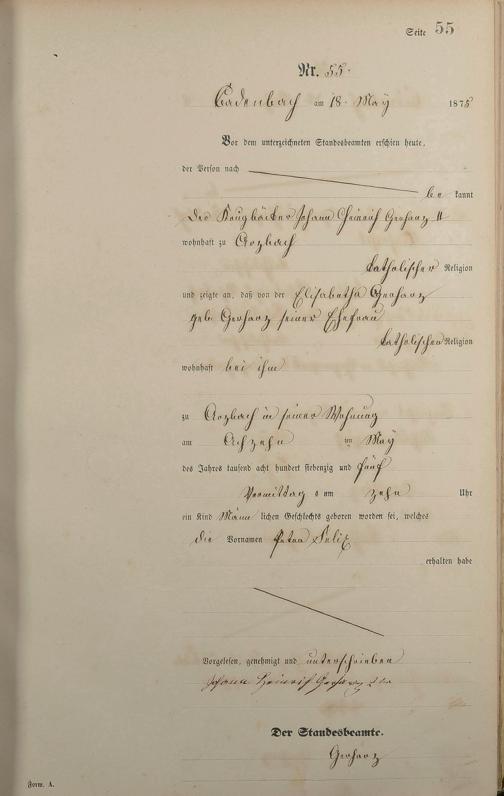 Seite 55
Nr. 55.
Cadenbach am 18. May 1875
Vor dem unterzeichneten Standesbeamten erschien heute,
der Person nach
be kannt
der Krugbäcker Johann Heinrich Gerharz II
wohnhaft zu Arzbach
katholischer Religion
und zeigte an, daß von der Elisabetha Gerharz
geb. Gerharz seiner Ehefrau
katholischen Religion
wohnhaft bei ihm
zu Arzbach in seiner Wohnung
am Achzehn im May
des Jahres tausend acht hundert siebenzig und fünf
Vormittag s um zehn Uhr
ein Kind Männ lichen Geschlechts geboren worden sei, welches
die Vornamen Peter Felix
erhalten habe
Vorgelesen, genehmigt und unterschrieben
Johann Heinrich Gerharz
Der Standesbeamte.
Gerharz
Form. A.